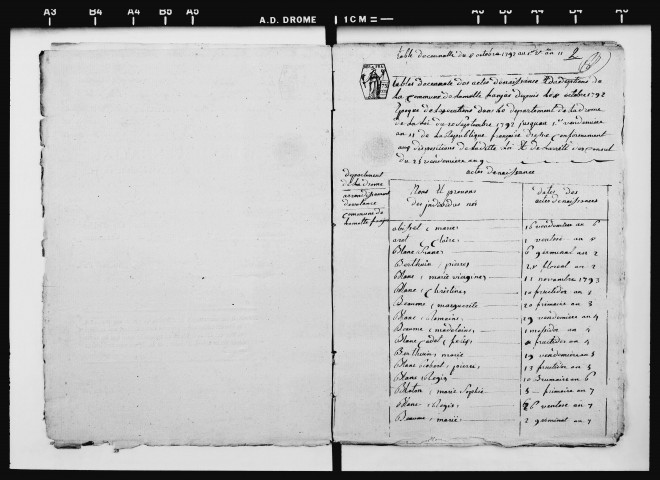 A3 B4 A4 B5 A5
A.D. DROME 1 CM
A5 B5 A4 B4 A3
table decennalle du 8 octobre 1792 au 1er Vre an 11
tables decennale des actes de naissance & d'adoptions de
la commune de lamotte fanjas depuis le 8 octobre 1792
Epoque de l'execution dans le departement de la drome
de la loi du 20 septembre 1792 jusqu'au 1er vendemiaire
an 11 de la Republique française dressé conformement
aux dispositions de ladite loi & de l'arrêté des consuls
du 25 vendemiaire an 9
actes de naissance
departement
de la drome
arrondissement
de valance
commune de
lamotte fanjas
Noms & prenoms
des individus nés
dates des
actes de naissances
marie 16 vendemiaire an 6
Claire 1 ventose an 8
Blanc 6 germinal an 2
Berthuin pierre 28 floreal an 2
Blanc marie virginie 11 novembre 1793
Blanc Christine 10 fructidor an 2
Beaume marguerite 20 frimaire an 3
Blanc 19 vendemiaire an 4
Beaume madelaine 1 messidor an 4
Blanc cadet felix fructidor an 4
Berthuin marie 19 vendemiaire an 5
Blanc pierre 13 fructidor an 5
Blanc 10 Brumaire an 6
marie Sophie 8 frimaire an 7
Blanc 26 ventose an 7
Beaume marie 2 germinal an 7